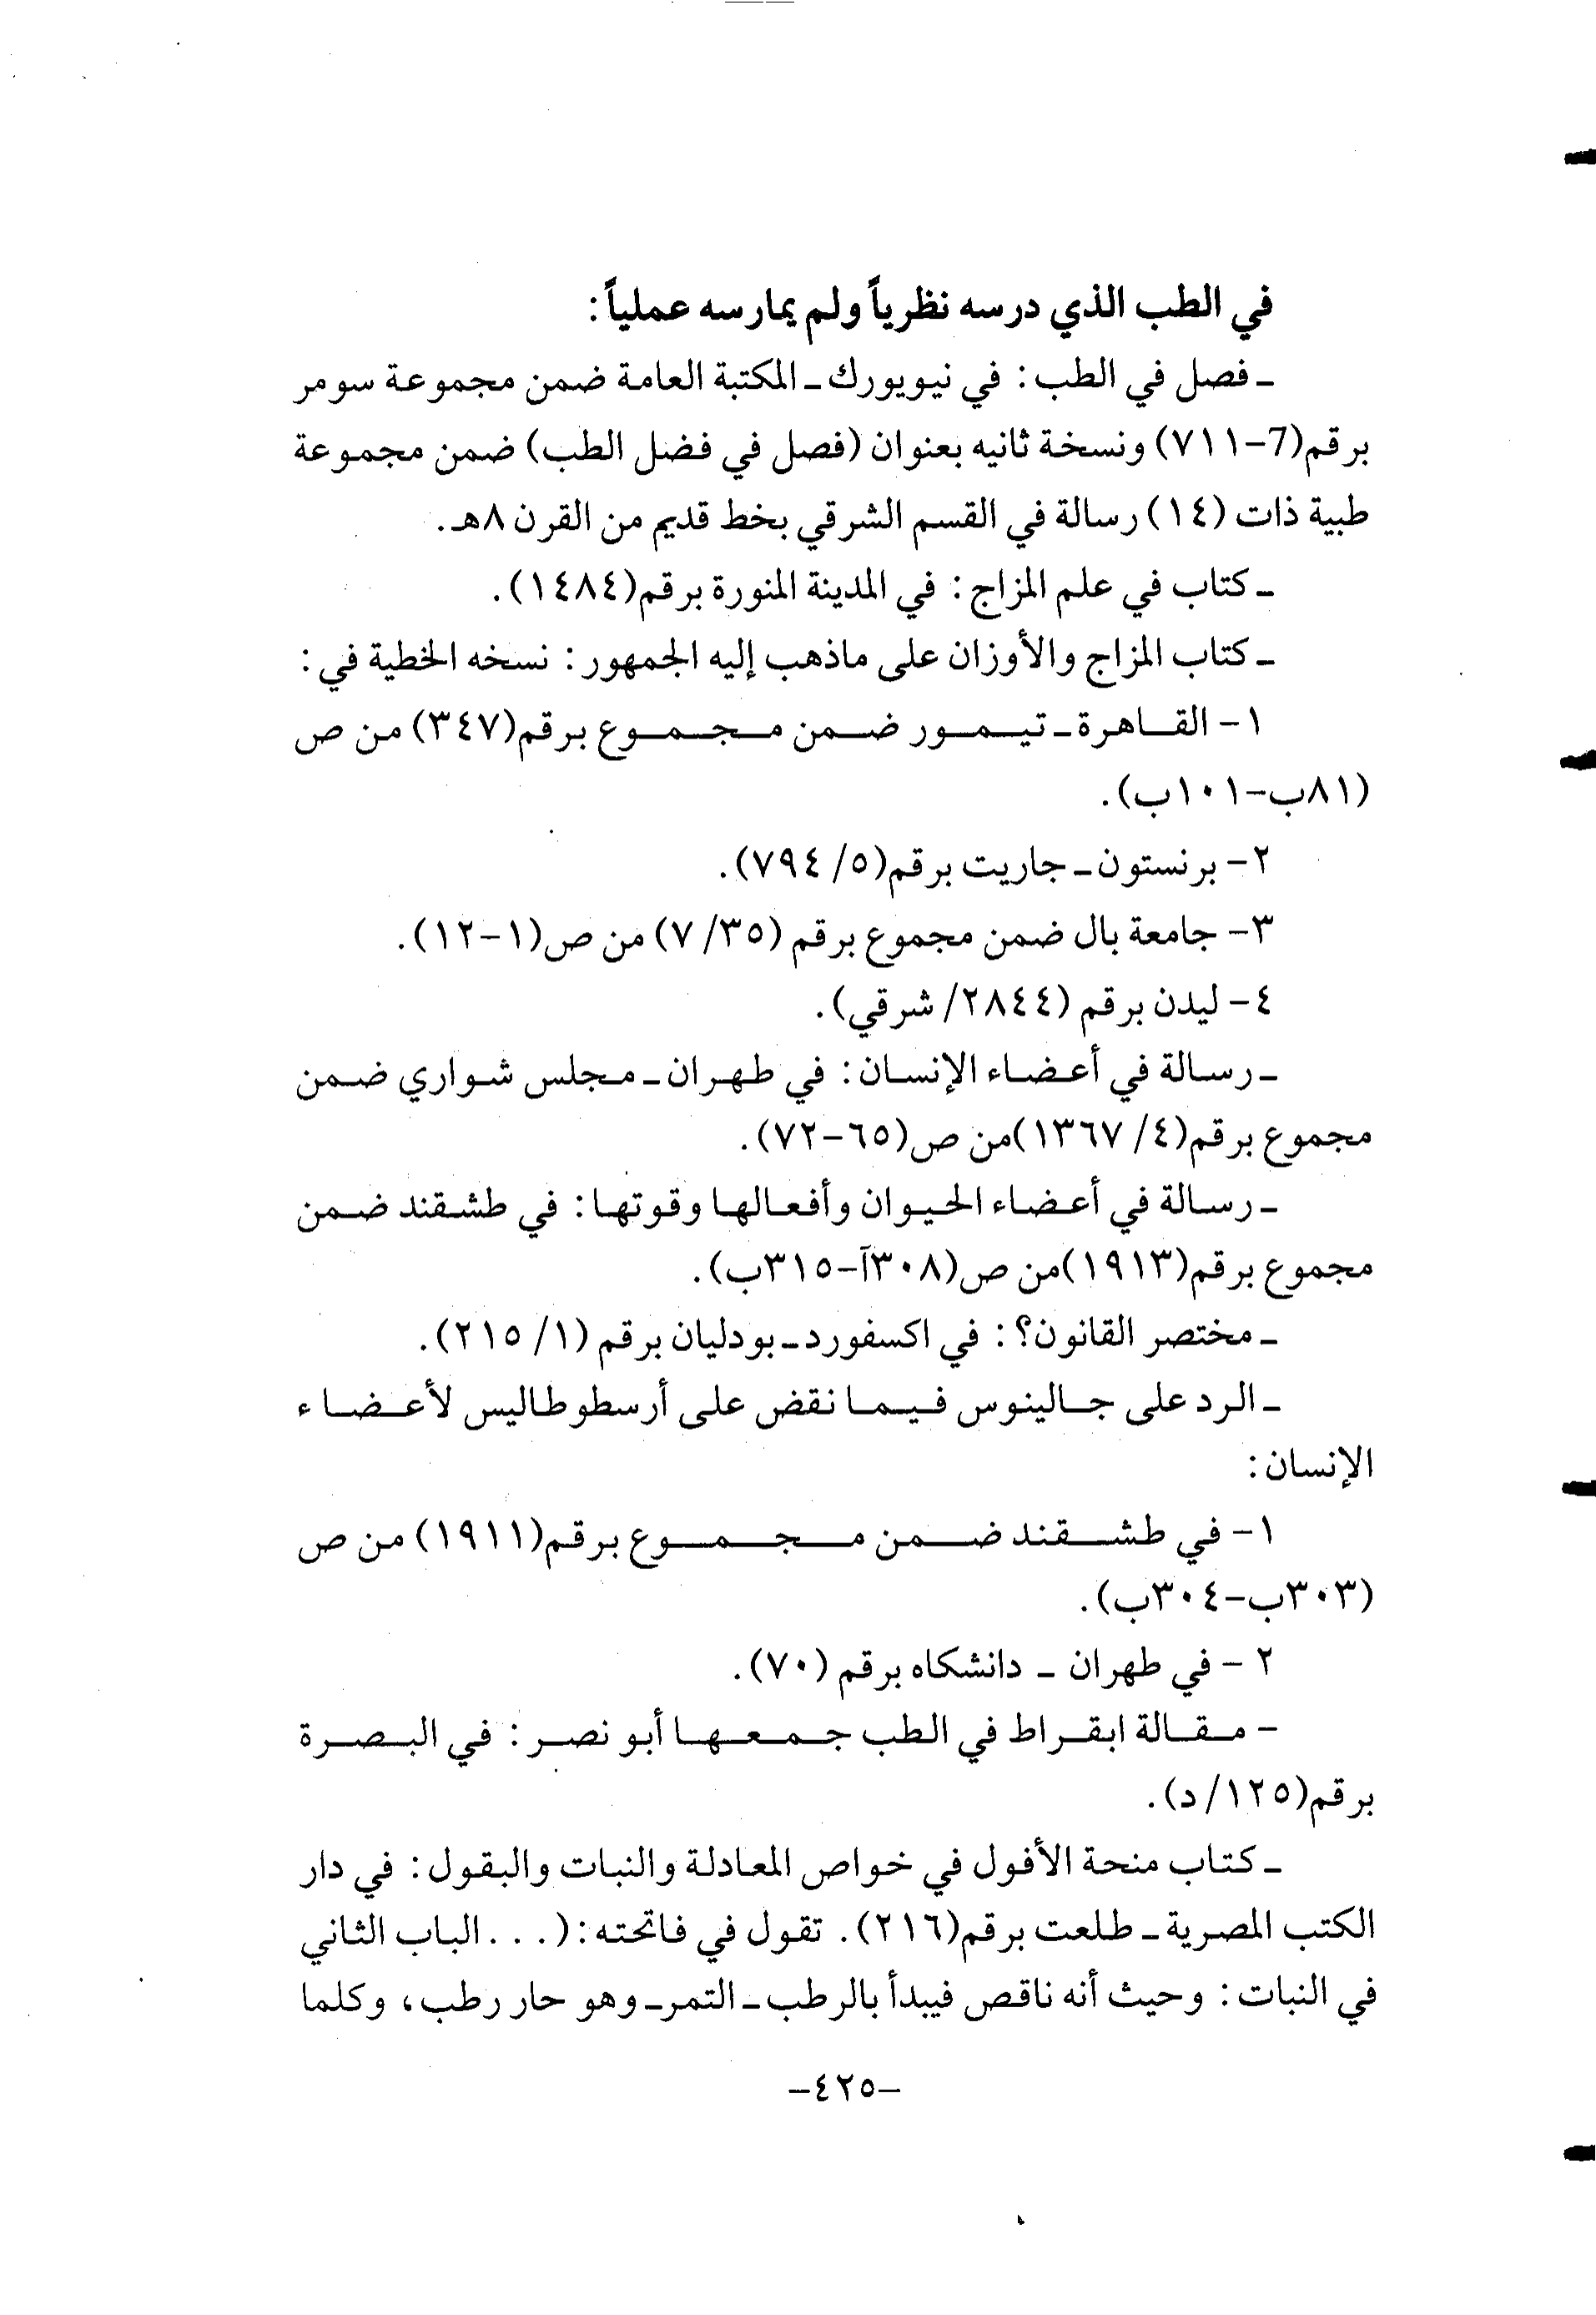 في الطب الذي درسه نظرياً ولم يمارسه عملياً:
ـ فصل في الطب: في نيويورك ـ المكتبة العامة ضمن مجموعة سومر
برقم(7-٧١١) ونسخة ثانيه بعنوان (فصل في فضل الطب) ضمن مجموعة
طبية ذات (١٤) رسالة في القسم الشرقي بخط قديم من القرن ٨هـ.
ـ كتاب في علم المزاج: في المدينة المنورة برقم(١٤٨٤).
ـ كتاب المزاج والأوزان على ماذهب إليه الجمهور: نسخه الخطية في:
١- القاهرة ـ تيمور ضمن مجموع برقم(٣٤٧) من ص
(٨١ب-١٠١ب).
٢- برنستون ـ جاريت برقم(٥/ ٧٩٤).
٣- جامعة بال ضمن مجموع برقم (٣٥/ ٧) من ص(١-١٢).
٤- ليدن برقم (٢٨٤٤/ شرقي).
ـ رسالة في أعضاء الإنسان: في طهران ـ مجلس شواري ضمن
مجموع برقم(٤/ ١٣٦٧)من ص(٦٥-٧٢).
ـ رسالة في أعضاء الحيوان وأفعالها وقوتها: في طشقند ضمن
مجموع برقم(١٩١٣)من ص(٣٠٨آ-٣١٥ب).
ـ مختصر القانون؟: في اكسفورد ـ بودليان برقم (١/ ٢١٥).
ـ الرد على جالينوس فيما نقض على أرسطوطاليس لأعضاء
الإنسان:
١- في طشقند ضمن مجموع برقم(١٩١١) من ص
(٣٠٣ب-٣٠٤ب).
٢ - في طهران ـ دانشكاه برقم (٧٠).
- مقالة ابقراط في الطب جمعها أبو نصر: في البصرة
برقم(١٢٥/ د).
ـ كتاب منحة الأفول في خواص المعادلة والنبات والبقول: في دار
الكتب المصرية ـ طلعت برقم(٢١٦). تقول في فاتحته: (. . .الباب الثاني
في النبات: وحيث أنه ناقص فيبدأ بالرطب ـ التمرـ وهو حار رطب، وكلما
-٤٢٥-